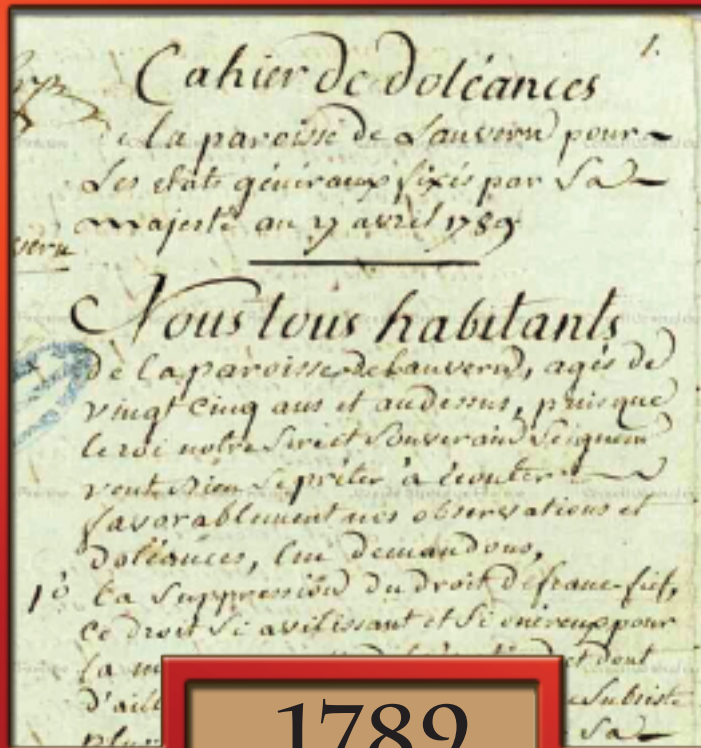 1.
Cahier de doléances
de la paroisse de Lanvern pour
Les etats généraux fixés par Sa
majesté au 27 avril 1789
Nous tous habitants
de la paroisse de Lanvern, agés de
vingt cinq ans et audessus, puisque
le roi notre Sire et Souverain Seigneur
veut Bien Se prêter à écouter
favorablement nos observations et
doléances, lui demandons,
1º La Suppression du droit de franc-fief,
Ce droit Si avilissant et Si onéreux pour
la et dont
d'ail Subsiste
plus Sa
1789